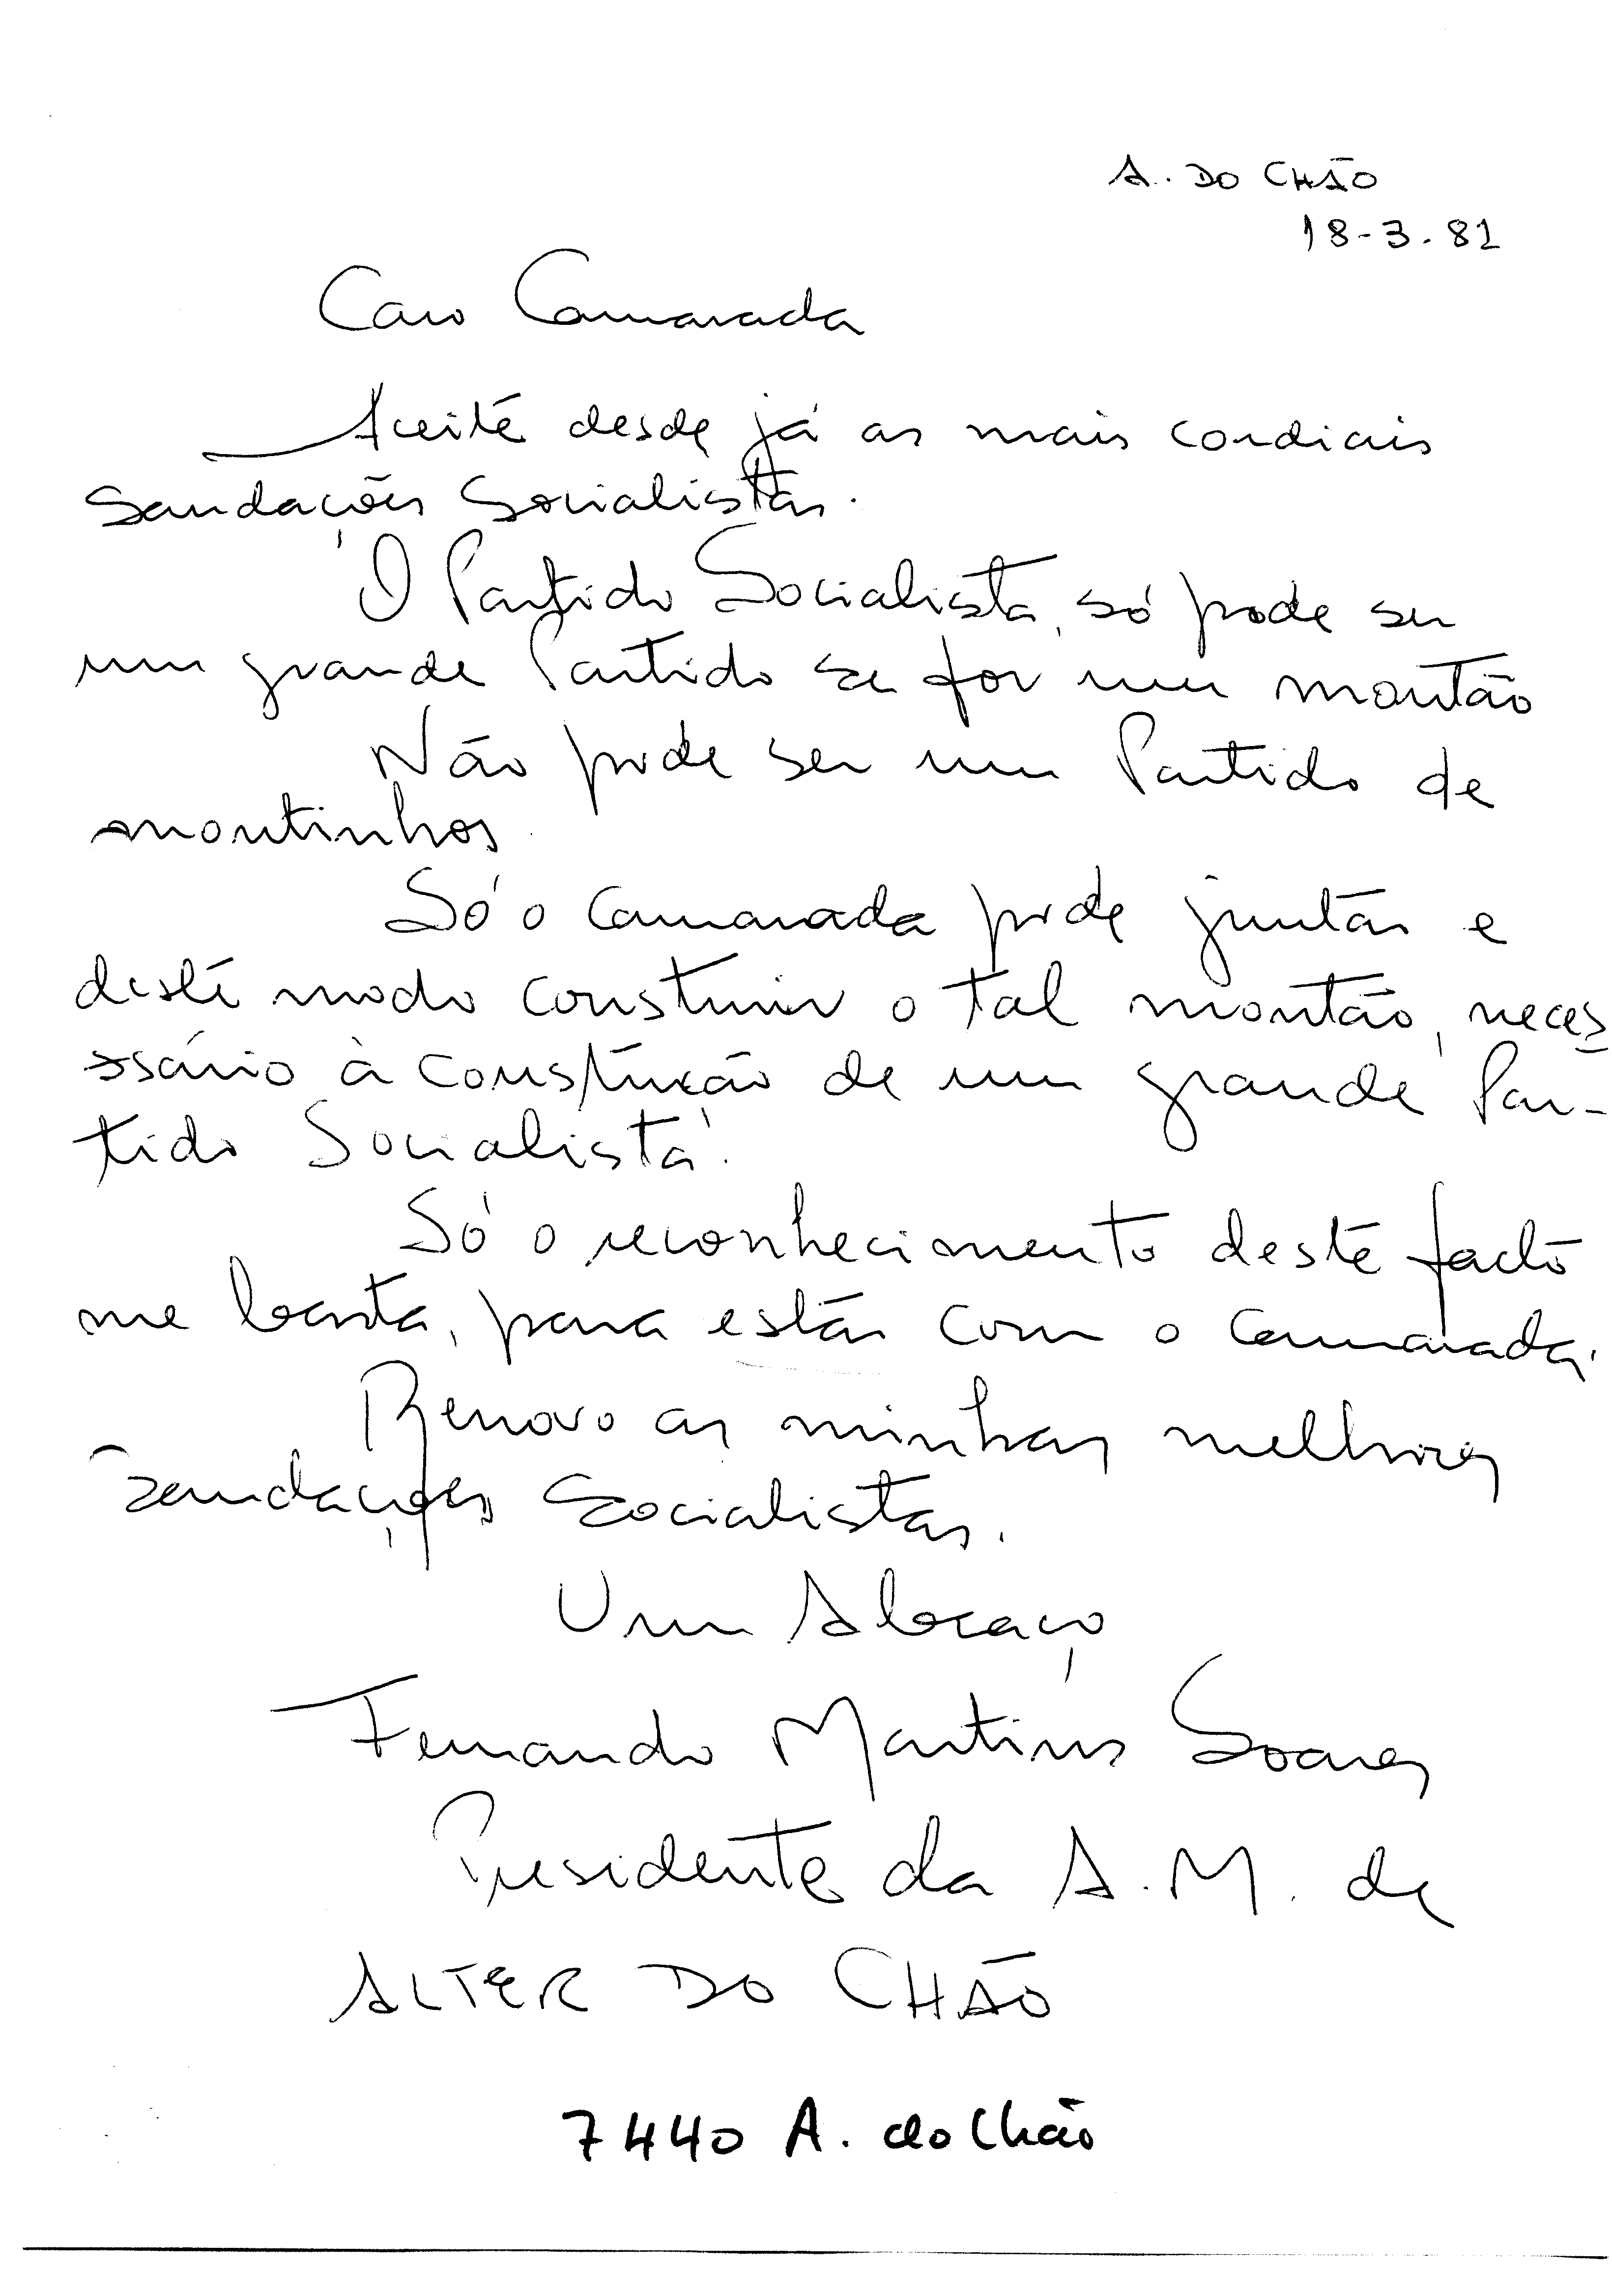 A. DO CHÃO
18-3.81
Caro Camarada
Aceite desde já as mais cordiais
saudações Socialistas.
O Partido Socialista, só pode ser
um grande Partido se for um montão
Não pode ser um Partido de
montinhos.
Só o Camarada pode juntar e
deste modo construir o tal montão, neces
ssário à construção de um grande Par-
tido Socialista.
Só o reconhecimento deste facto
me basta, para estar com o camarada.
Renovo as minhas melhores
saudações Socialistas.
Um Abraço
Fernando Martins Soares
Presidente da A.M. de
ALTER DO CHÃO
7440 A. do Chão